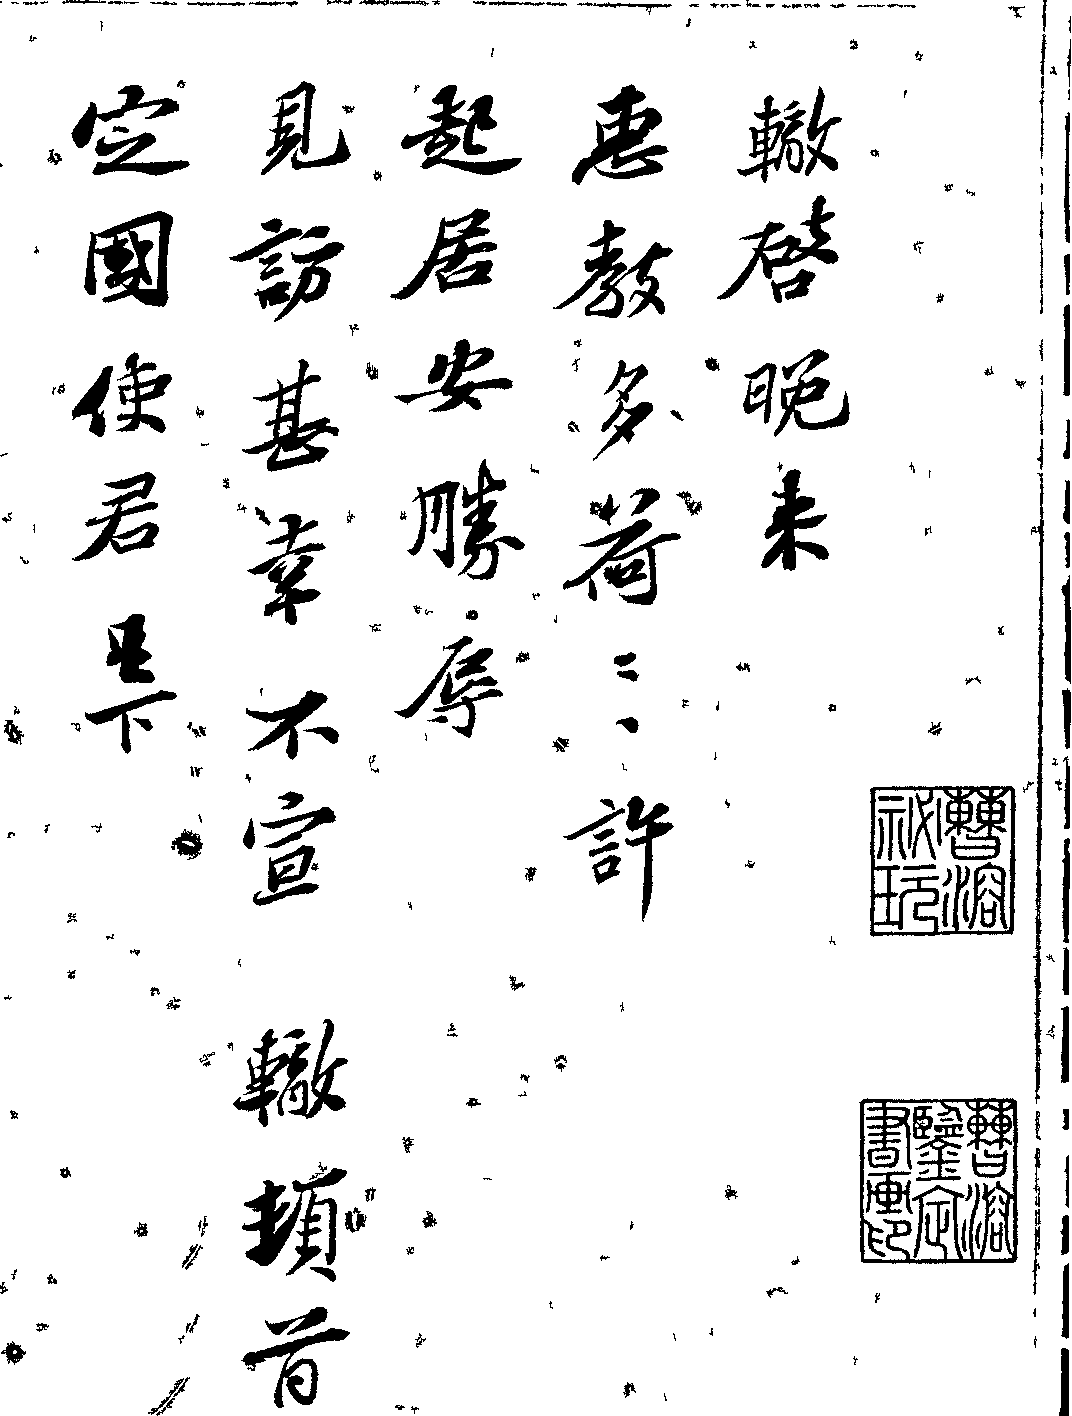 轍啓晚来
惠教多荷〻〻許
起居安勝辱
見訪甚幸不宣 轍頓首
定國使君足下
曹溶
祕玩
曹溶
鑒定
書畫印